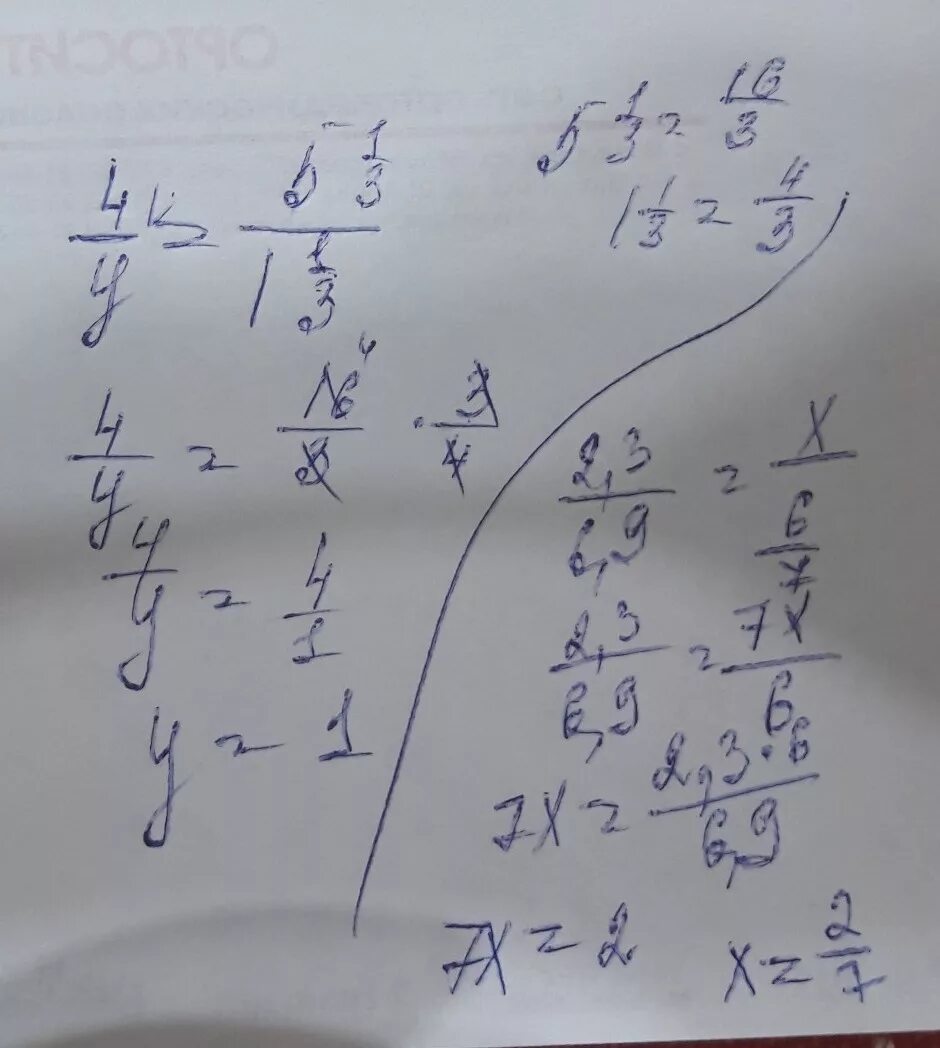 ОРТОСИТ
4/y = 5 1/3 / 1 1/3
5 1/3 = 16/3
1 1/3 = 4/3
4/y = 16/3 · 3/4
4
4/y = 4/1
y = 1
2,3/6,9 = x / 6/7
2,3/6,9 = 7x/6
7x = 2,3·6/6,9
7x = 2
x = 2/7